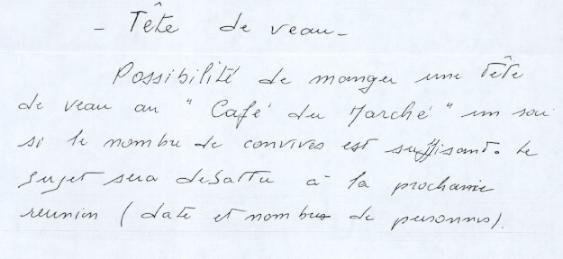 - Tête de veau -
Possibilité de manger une Tête
de veau au " Café du Marché " un soir
si le nombre de convives est suffisant. Le
sujet sera débattu à la prochaine
réunion ( date et nombre de personnes).